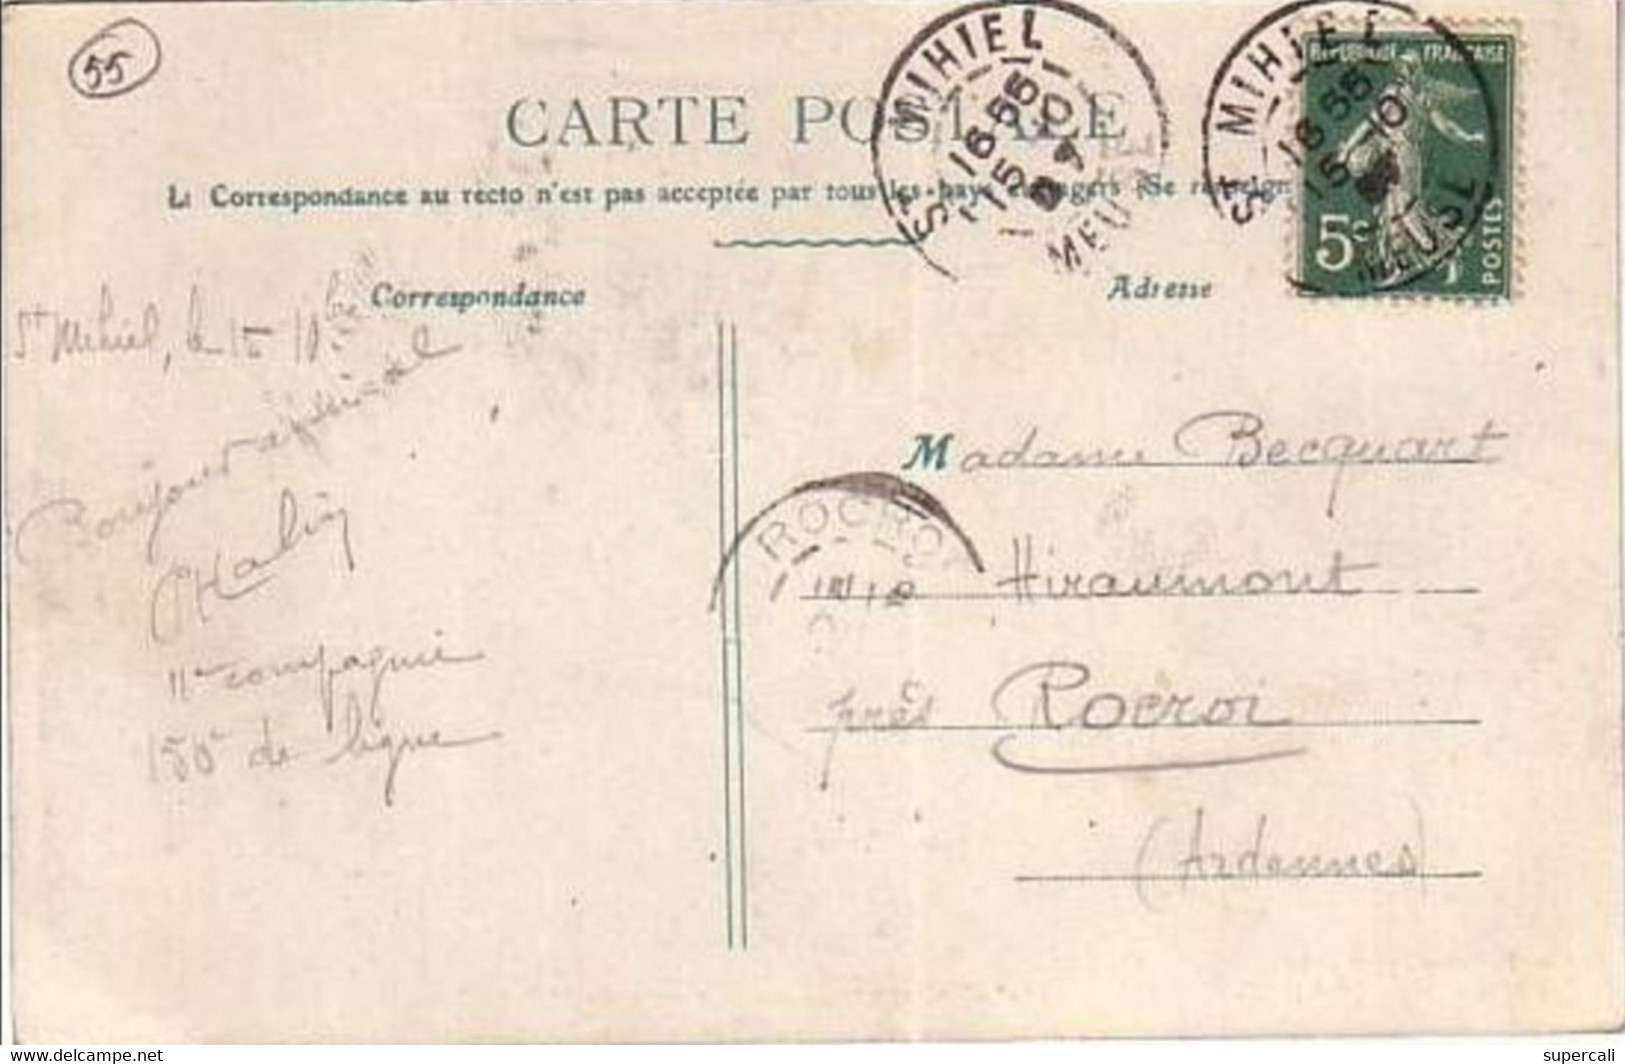 55
CARTE POSTALE
La Correspondance au recto n'est pas acceptée par tous les pays étrangers (Se renseign
Correspondance
Adresse
ST MIHIEL
16 55
15 10
07
MEUSE
ST MIHIEL
16 55
15 10
MEUSE
REPUBLIQUE FRANÇAISE
5c
POSTES
St Mihiel, le 15-10
Bonjour amical
11e compagnie
150e de ligne
Madame Becquart
Hiraumont
près Rocroi
(Ardennes)
ROCROI
delcampe.net
supercali